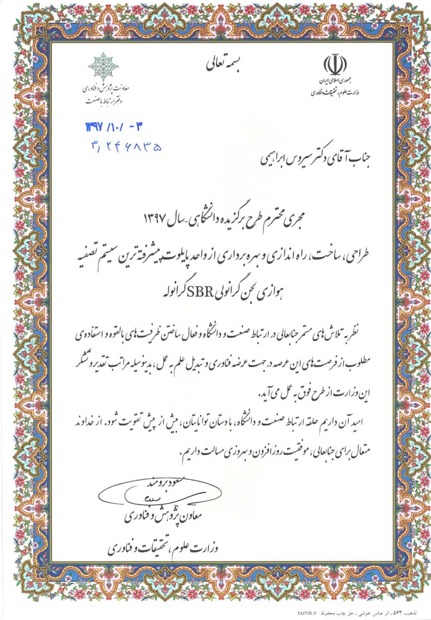 بسمه تعالی
جمهوری اسلامی ایران
وزارت علوم، تحقیقات و فناوری
معاونت پژوهش و فناوری
دفتر ارتباط با صنعت
۱۳۹۷/۱۰/۰۳
۳/۲۴۶۸۳۵
جناب آقای دکتر سیروس ابراهیمی
مجری محترم طرح برگزیده دانشگاهی ـ سال ۱۳۹۷
طراحی، ساخت، راه اندازی و بهره برداری از واحد پایلوت پیشرفته ترین سیستم تصفیه
هوازی لجن گرانولی SBR گرانوله
نظر به تلاش های مستمر جنابعالی در ارتباط صنعت و دانشگاه و فعال ساختن ظرفیت های بالقوه و استفاده ی
مطلوب از فرصت های این عرصه در جهت عرضه فناوری و تبدیل علم به عمل، بدینوسیله مراتب تقدیر و تشکر
این وزارت از طرح فوق به عمل می آید.
امید آن داریم حلقه ارتباط صنعت و دانشگاه، با دستان توانایتان، بیش از پیش تقویت شود. از خداوند
متعال برای جنابعالی، موفقیت روزافزون و بهروزی مسالت داریم.
مسعود برومند
معاون پژوهش و فناوری
وزارت علوم، تحقیقات و فناوری
tazhib.ir تذهیب ۵۶۴، اثر عباس خوشی - حق چاپ محفوظ